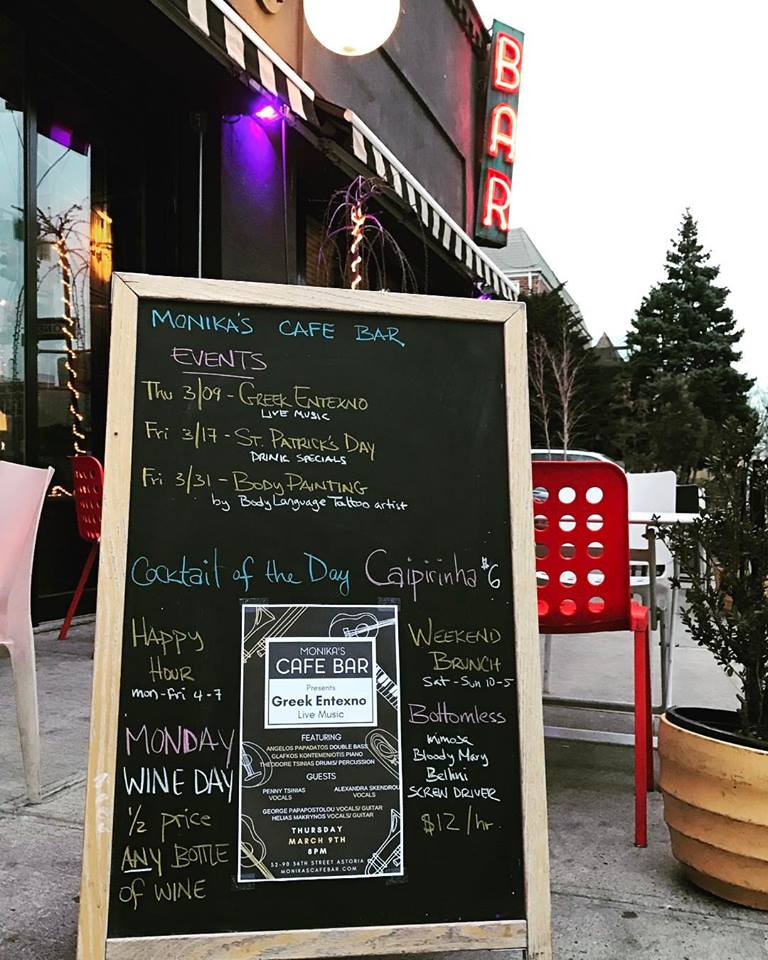 BAR
MONIKA'S CAFE BAR
EVENTS
Thu 3/09 - GREEK ENTEXNO
LIVE MUSIC
Fri 3/17 - ST. PATRICK'S DAY
DRINK SPECIALS
Fri 3/31 - BODY PAINTING
by Body Language Tattoo artist
Cocktail of the Day Caipirinha $6
HAPPY
HOUR
mon-Fri 4-7
MONDAY
WINE DAY
1/2 price
ANY BOTTLE
of WINE
MONIKA'S
CAFE BAR
Presents
Greek Entexno
Live Music
FEATURING
ANGELOS PAPADATOS DOUBLE BASS
GLAFKOS KONTEMENIOTIS PIANO
THEODORE TSINIAS DRUMS/ PERCUSSION
GUESTS
PENNY TSINIAS
VOCALS
ALEXANDRA SKENDROU
VOCALS
GEORGE PAPAPOSTOLOU VOCALS/ GUITAR
HELIAS MAKRYNOS VOCALS/ GUITAR
THURSDAY
MARCH 9TH
8PM
32-90 36TH STREET ASTORIA
MONIKASCAFEBAR.COM
WEEKEND
BRUNCH
Sat-Sun 10-5
Bottomless
mimosa
Bloody Mary
Bellini
SCREW DRIVER
$12/hr.